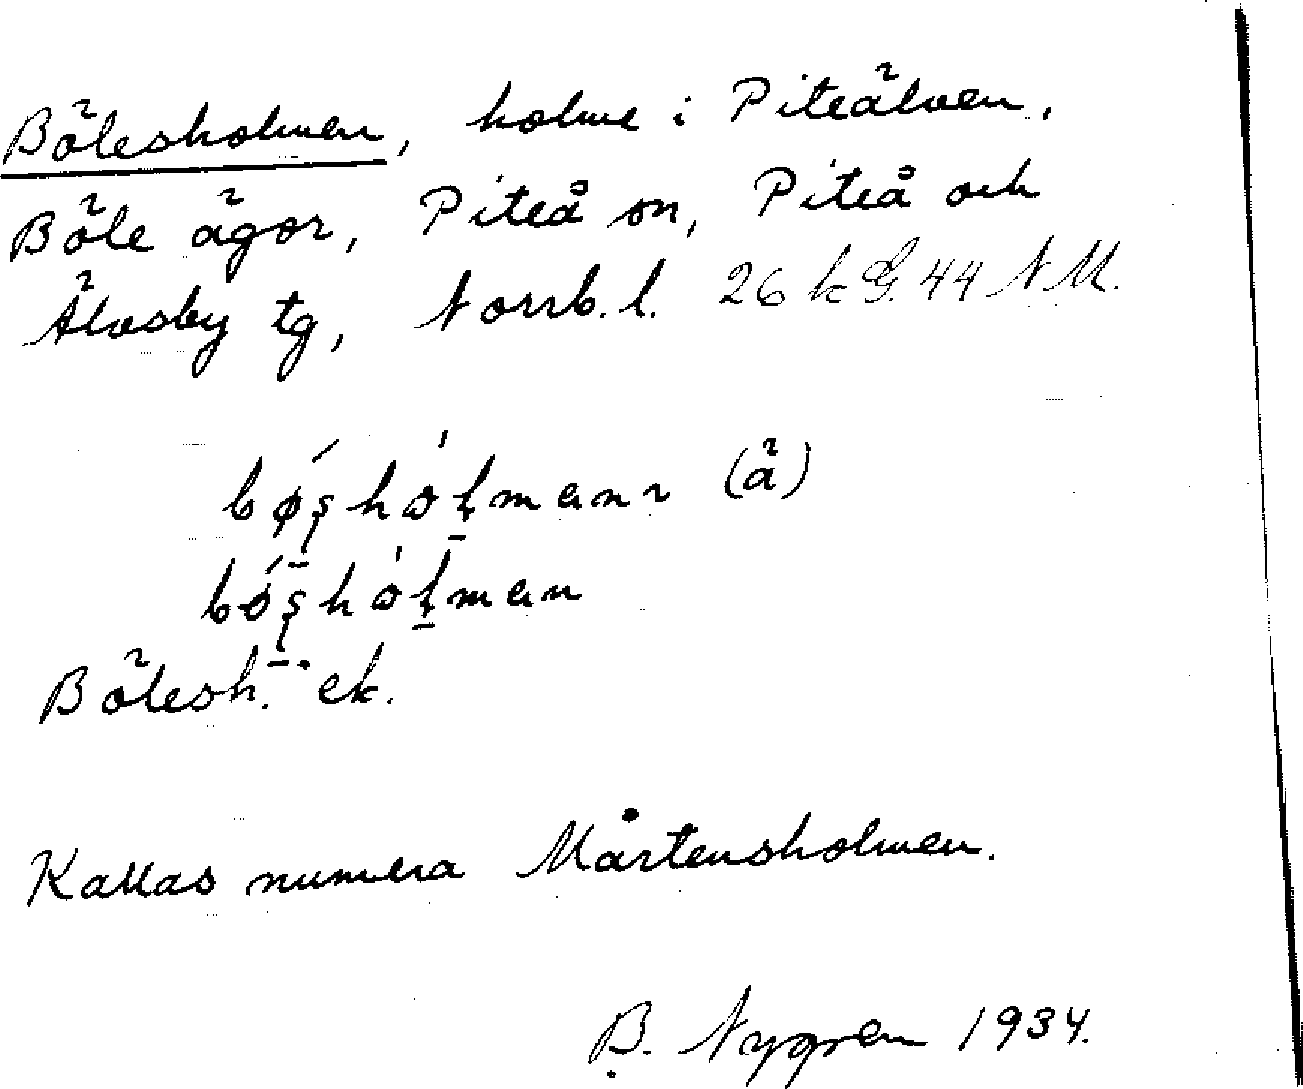 Bölesholmen, holme i Piteälven,
Böle ägor, Piteå sn, Piteå och
Älvsby tg, Norrb. l. 26 k G. 44 N M.
(å)
Bölesh. ek.
Kallas numera Mårtensholmen.
B. Nygren 1934.